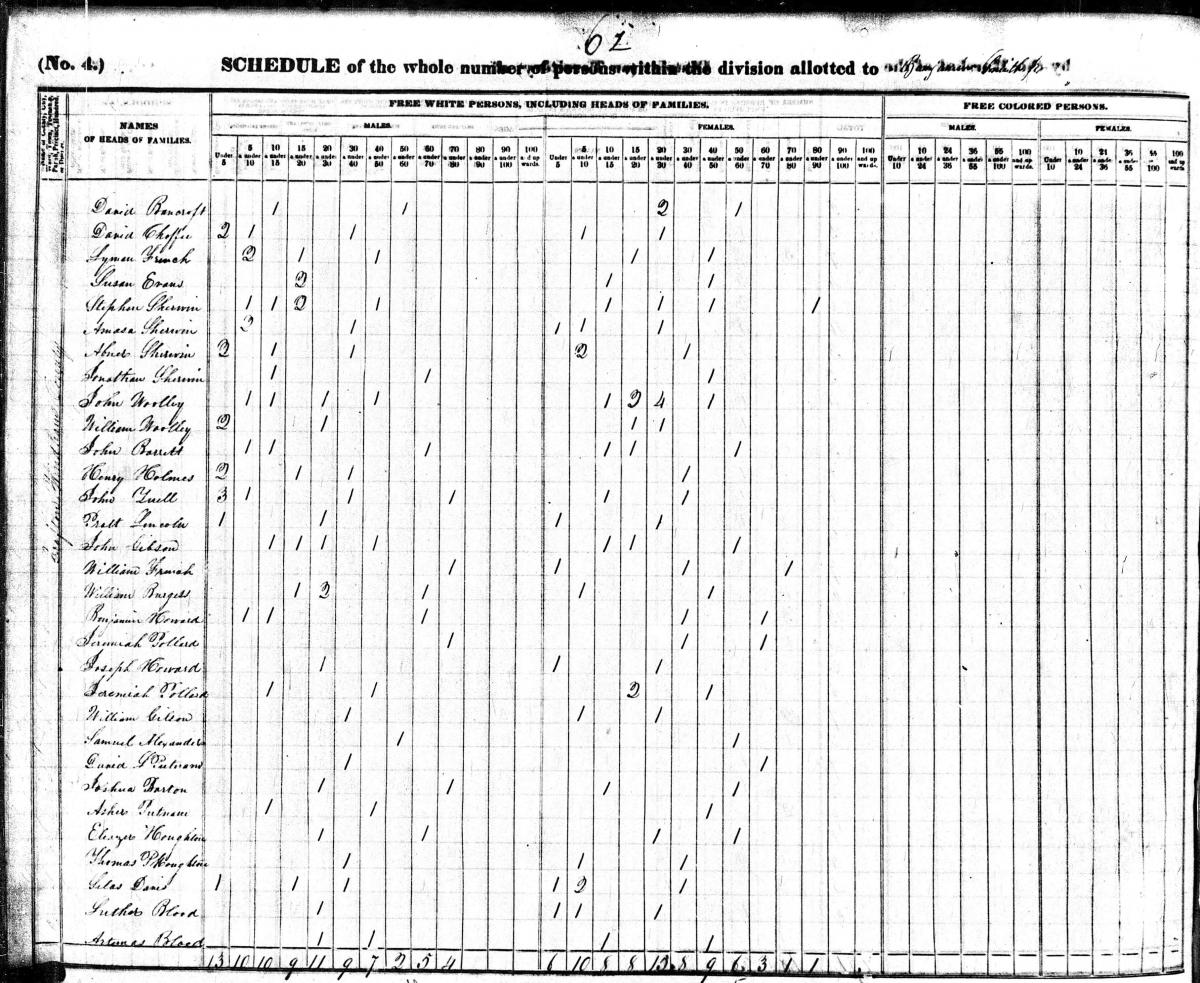 62
(No. 4.) SCHEDULE of the whole number of persons within the division allotted to
FREE WHITE PERSONS, INCLUDING HEADS OF FAMILIES. FREE COLORED PERSONS.
NAMES OF HEADS OF FAMILIES. MALES. FEMALES. MALES. FEMALES.
Under 5 5 & under 10 10 & under 15 15 & under 20 20 & under 30 30 & under 40 40 & under 50 50 & under 60 60 & under 70 70 & under 80 80 & under 90 90 & under 100 100 and up wards. Under 5 5 & under 10 10 & under 15 15 & under 20 20 & under 30 30 & under 40 40 & under 50 50 & under 60 60 & under 70 70 & under 80 80 & under 90 90 & under 100 100 and up wards. Under 10 10 & under 24 24 & under 36 36 & under 55 55 & under 100 100 and up wards. Under 10 10 & under 24 24 & under 36 36 & under 55 100 100 and up wards
David Bancroft 1 1 2 1
David 2 1 1 1 1
Lyman French 2 1 1 1 1
Susan Evans 2 1 1
Stephen Sherwin 1 1 2 1 1 1 1 1
Amasa Sherwin 2 1 1 1 1
Abner Sherwin 2 1 1 2 1
Jonathan Sherwin 1 1 1
John Woolley 1 1 1 1 1 2 4 1
William Woolley 2 1 1 1
John Barrett 1 1 1 1 1 1
Henry Holmes 2 1 1 1
John 3 1 1 1 1 1
Pratt Lincoln 1 1 1 1
John Gibson 1 1 1 1 1 1 1
William French 1 1 1 1
William Burgess 1 2 1 1 1
Benjamin Howard 1 1 1 1 1
Jeremiah Pollard 1 1 1
Joseph Howard 1 1 1
Jeremiah Pollard 1 1 2 1
William Gilson 1 1 1
Samuel Alexander 1 1
David Putnam 1 1
Joshua Barton 1 1 1 1
Asher Putnam 1 1 1
Eleazer Houghton 1 1 1 1
Thomas Houghton 1 1 1
Silas Davis 1 1 1 1 2 1
Luther Blood 1 1 1 1
Artemas Blood 1 1 1 1
13 10 10 9 11 9 7 2 5 4 6 10 8 8 13 8 9 6 3 1 1